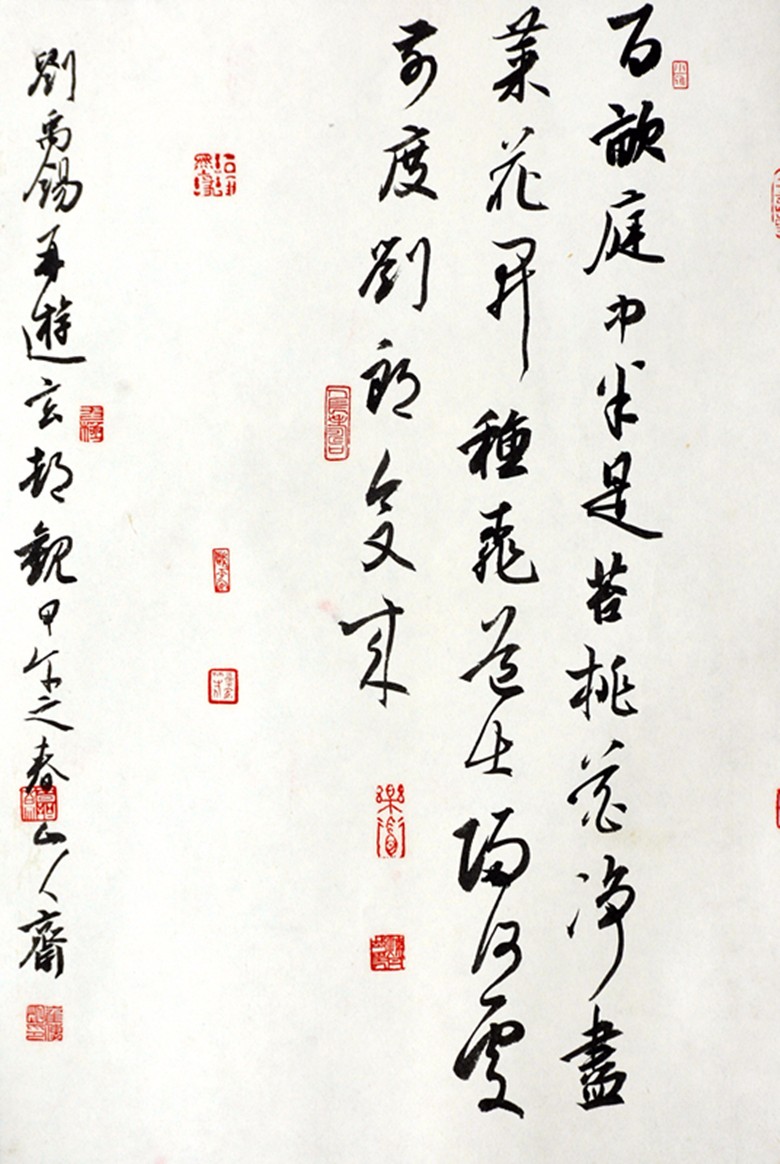 百畝庭中半是苔桃花淨盡
菜花開種桃道士歸何處
前度劉郎今又來
劉禹錫再遊玄都觀甲午之春山人齋